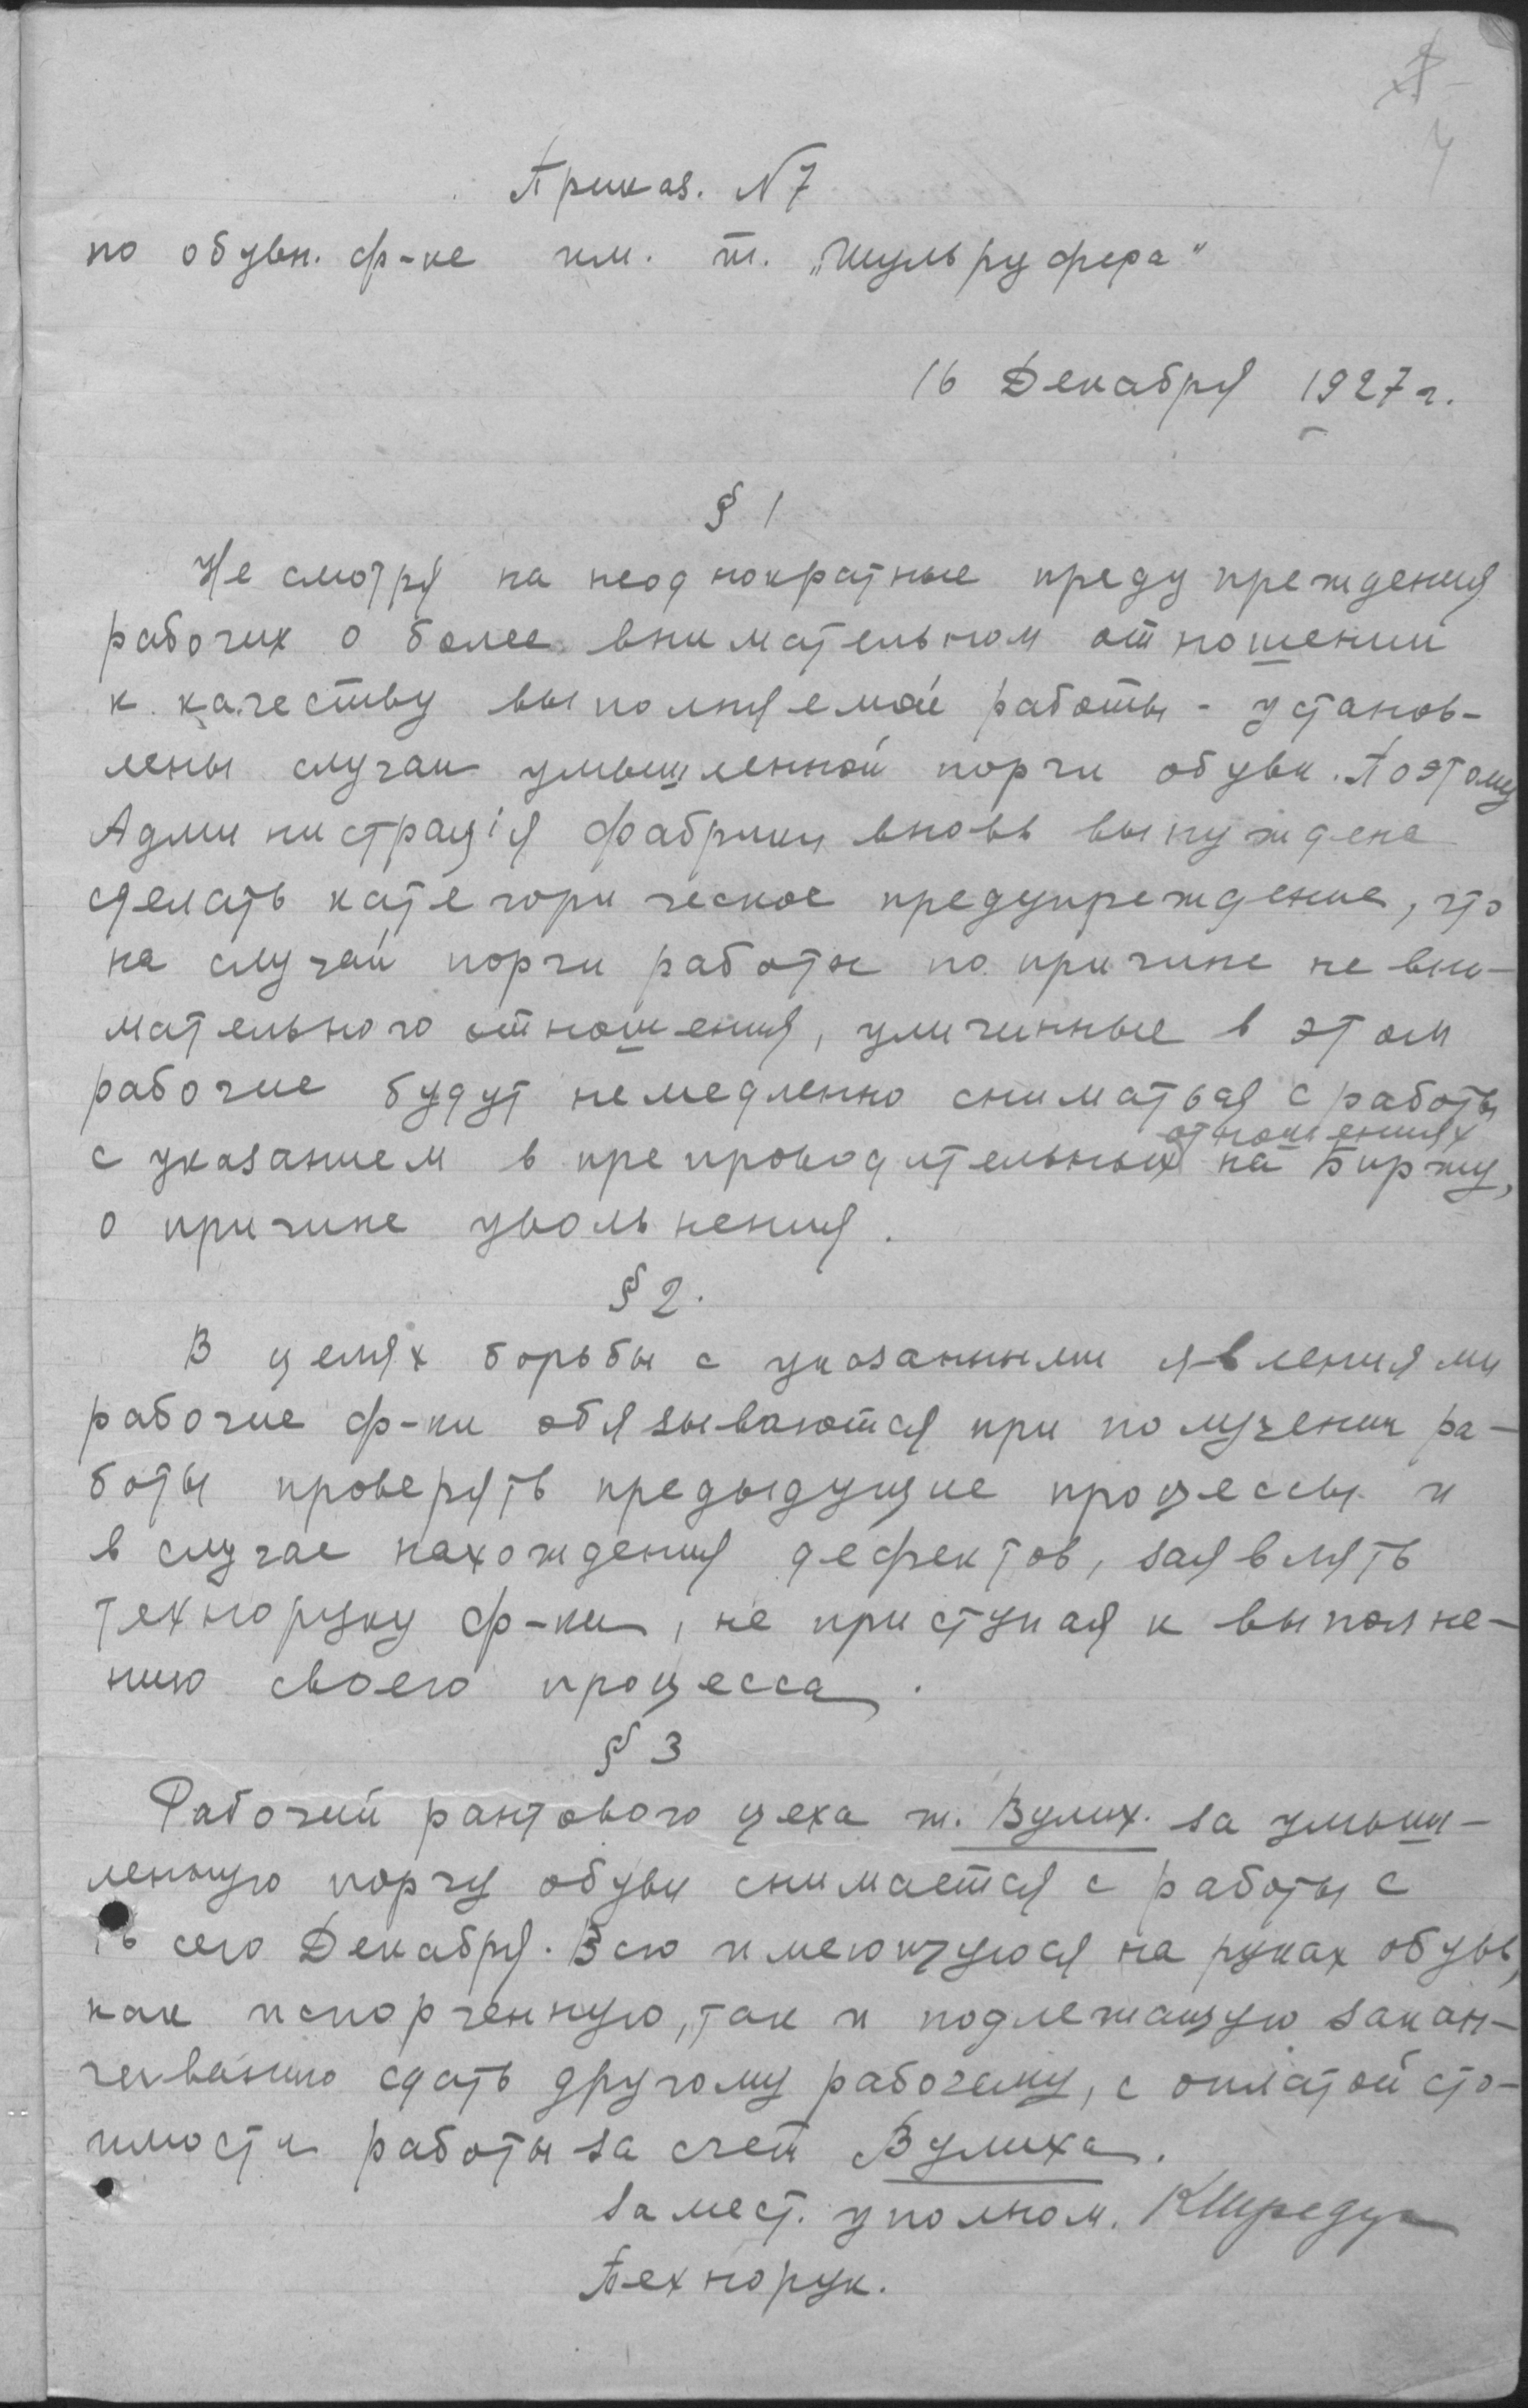 4
Приказ. N 7
по обувн. ф-ке им. т. „Шульруфера"
16 Декабря 1927 г.
§ 1
Не смотря на неоднократные предупреждения
рабочих о более внимательном отношении
к качеству выполняемой работы - установ-
лены случаи умышленной порчи обуви. Поэтому
Администрація фабрики вновь вынуждена
сделать категорическое предупреждение, что
на случай порчи работы по причине не вни-
мательного отношения, уличинные в этом
рабочие будут немедленно сниматься с работы
с указанием в препроводительных отношениях на Биржу,
о причине увольнения.
§ 2.
В целях борьбы с указанными явлениями
рабочие ф-ки обязываются при получении ра-
боты проверять предыдущие процессы и
в случае нахождения дефектов, заявлять
техноруку ф-ки, не приступая к выполне-
нию своего процесса.
§ 3
Рабочий рантового цеха т. Вулих. за умыш-
ленную порчу обуви снимается с работы с
16 сего Декабря. Всю имеющуюся на руках обувь,
как испорченную, так и подлежащую закан-
чиванию сдать другому рабочему, с оплатой сто-
имости работы за счет Вулиха.
Замест. уполном.
Технорук.